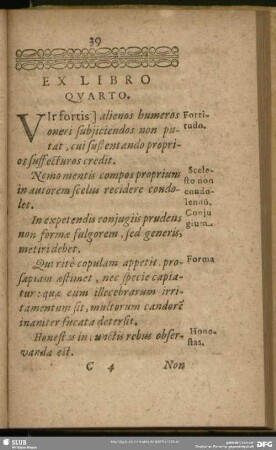 39
EX LIBRO
QVARTO.
VIr fortis] alienos humeros
oneri subjiciendos non pu-
tat, cui sustentando propri-
os suffecturos credit.
Fortitudo.
Nemo mentis compos proprium
in autorem scelus recidere condo-
les.
Scelesto non condolendū.
In expetendis conjugiis prudens
non formæ fulgorem, sed generis,
metiri debet.
Conjugium.
Qui ritè copulam appetit, pro-
sapiam æstimet, nec specie capia-
tur: quæ cum illecebrarum irri-
tamentum sit, multorum candorē
inaniter fucata detersit.
Forma
Honestas in cunctis rebus obser-
vanda est.
Honestas.
C 4
Non
SLUB
DFG